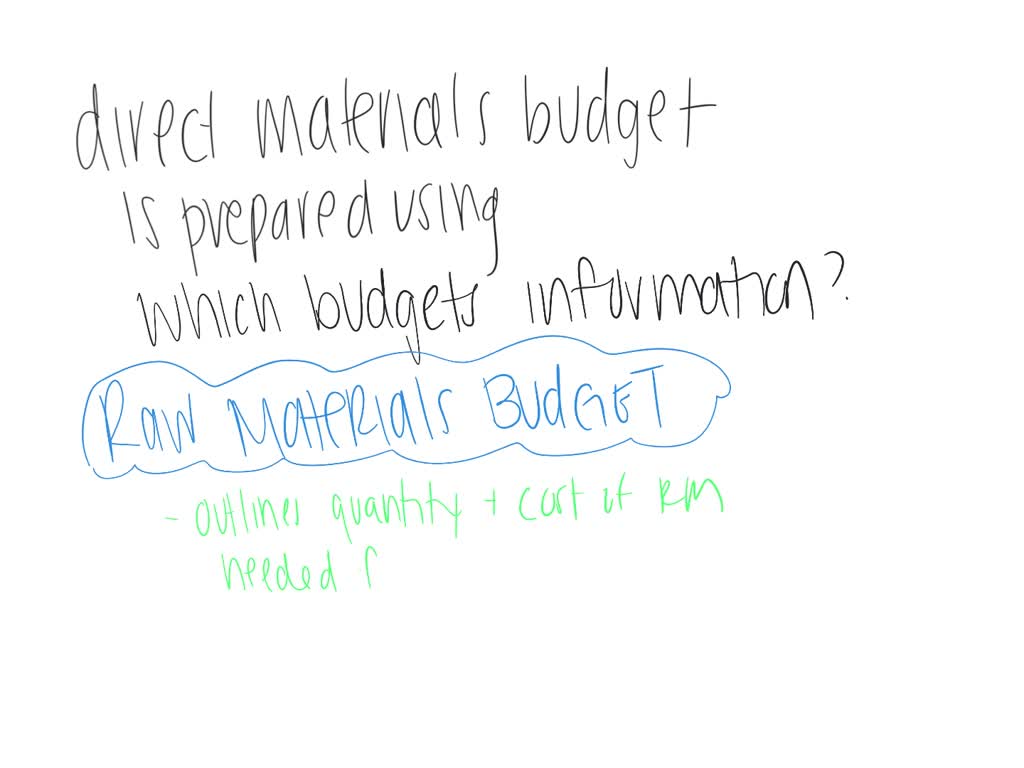 direct materials budget
is prepared using
which budgets information?
RAW MATERIALS BUDGET
- outlines quantity + cost of RM
needed f